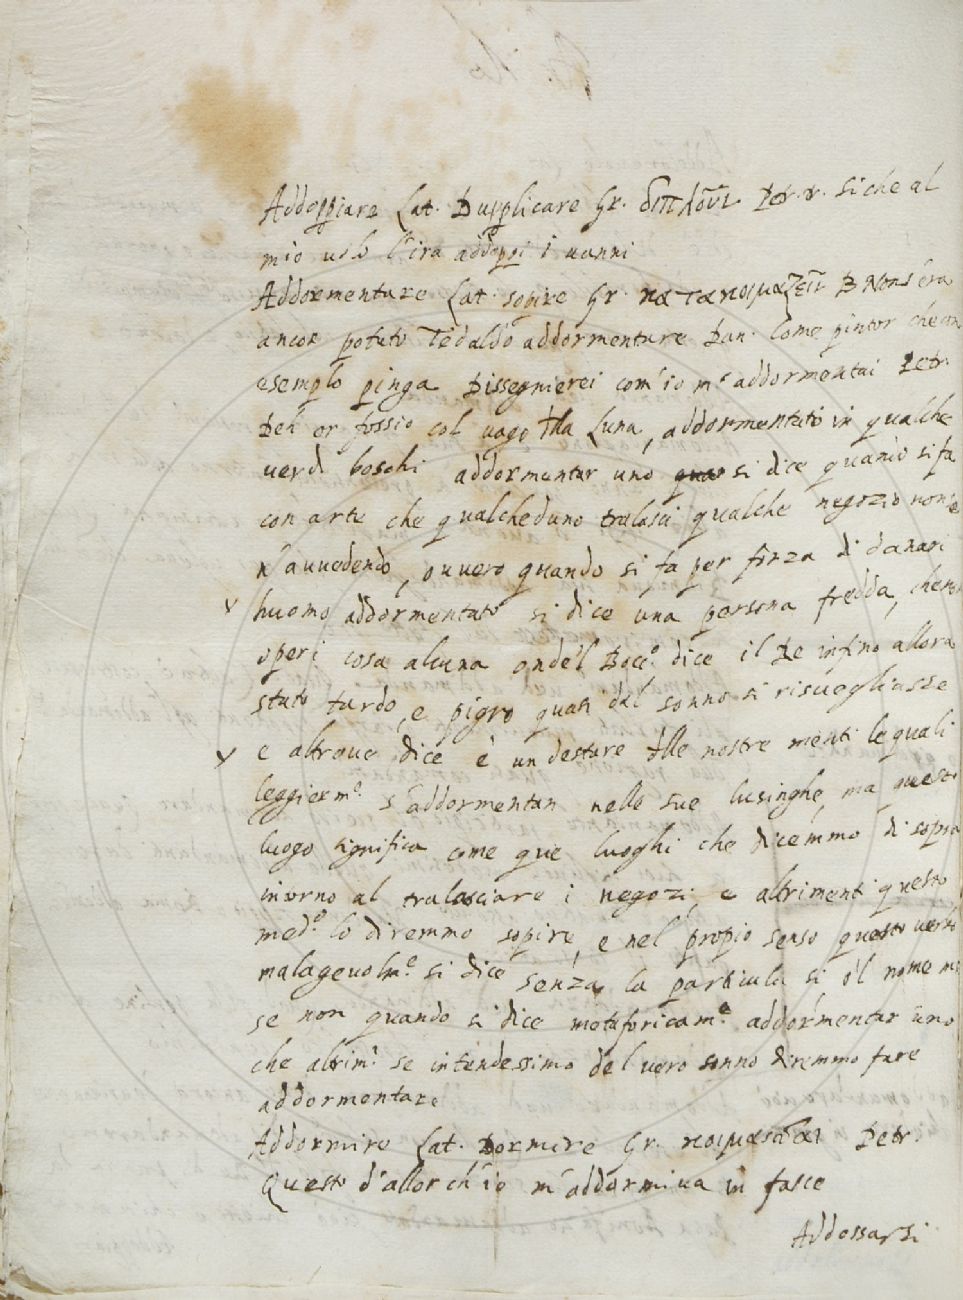 Addoppiare Lat. Dupplicare Gr. διπλοῦν Petr. v. Si che al
mio volo l'ira addoppi i vanni
Addormentare Lat. sopire Gr. κατακοιμαζεῖν B Non s'era
ancor potuto Tedaldo addormentare Dan. Come pintor che con
esemplo pinga Dissegnierei com'io m'addormentai Petr.
Deh or foss'io col vago della Luna, addormentato in qualche
verdi boschi addormentar uno si dice quando si fa
con arte che qualcheduno tralasci qualche negozio non se
n'avvedendo, ovvero quando si fa per forza di danari
huomo addormentato si dice una persona fredda, che non
operi cosa alcuna onde'l Bocc.o dice il Re infino allora
stato tardo, e pigro quasi dal sonno si risvegliasse
e altrove dice è un destare delle nostre menti le quali
leggierm.e s'addormentan nelle sue lusinghe, ma questo
luogo significa come que luoghi che dicemmo di sopra
intorno al tralasciare i negozi, e altrimenti questo
med.o lo diremmo sopire, e nel propio senso questo verbo
malagevolm.e si dice senza la particula si o'l nome
se non quando si dice metaforicam.e addormentar uno
che altrim.i se intendessimo del vero sonno diremmo fare
addormentare
Addormire Lat. Dormire Gr. κοιμᾶσθαι Petr.
Questo d'allor ch'io m'addormiva in fasce
Addossarsi